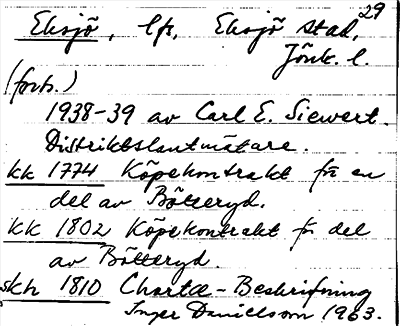 29
Eksjö, lfs, Eksjö stad,
Jönk. l.
(forts.)
1938-39 av Carl E. Siewert.
Distriktslantmätare.
kk 1774 Köpekontrakt på en
del av Bötteryd.
kk 1802 Köpekontrakt på del
av Bötteryd.
skh 1810 Chartæ-Beskrifning
Inger Danielsson 1963.